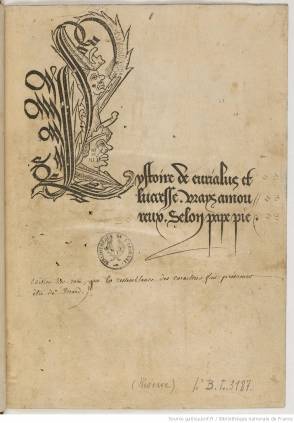 Lystoire de eurialus et
lucresse. vrays amou
reux. Selon pape pie
edition très rare, que la ressemblance des caractères fait présumer
être de Verard.
(Réserve) 4° B. L. 3187.
Source gallica.bnf.fr / Bibliothèque nationale de France